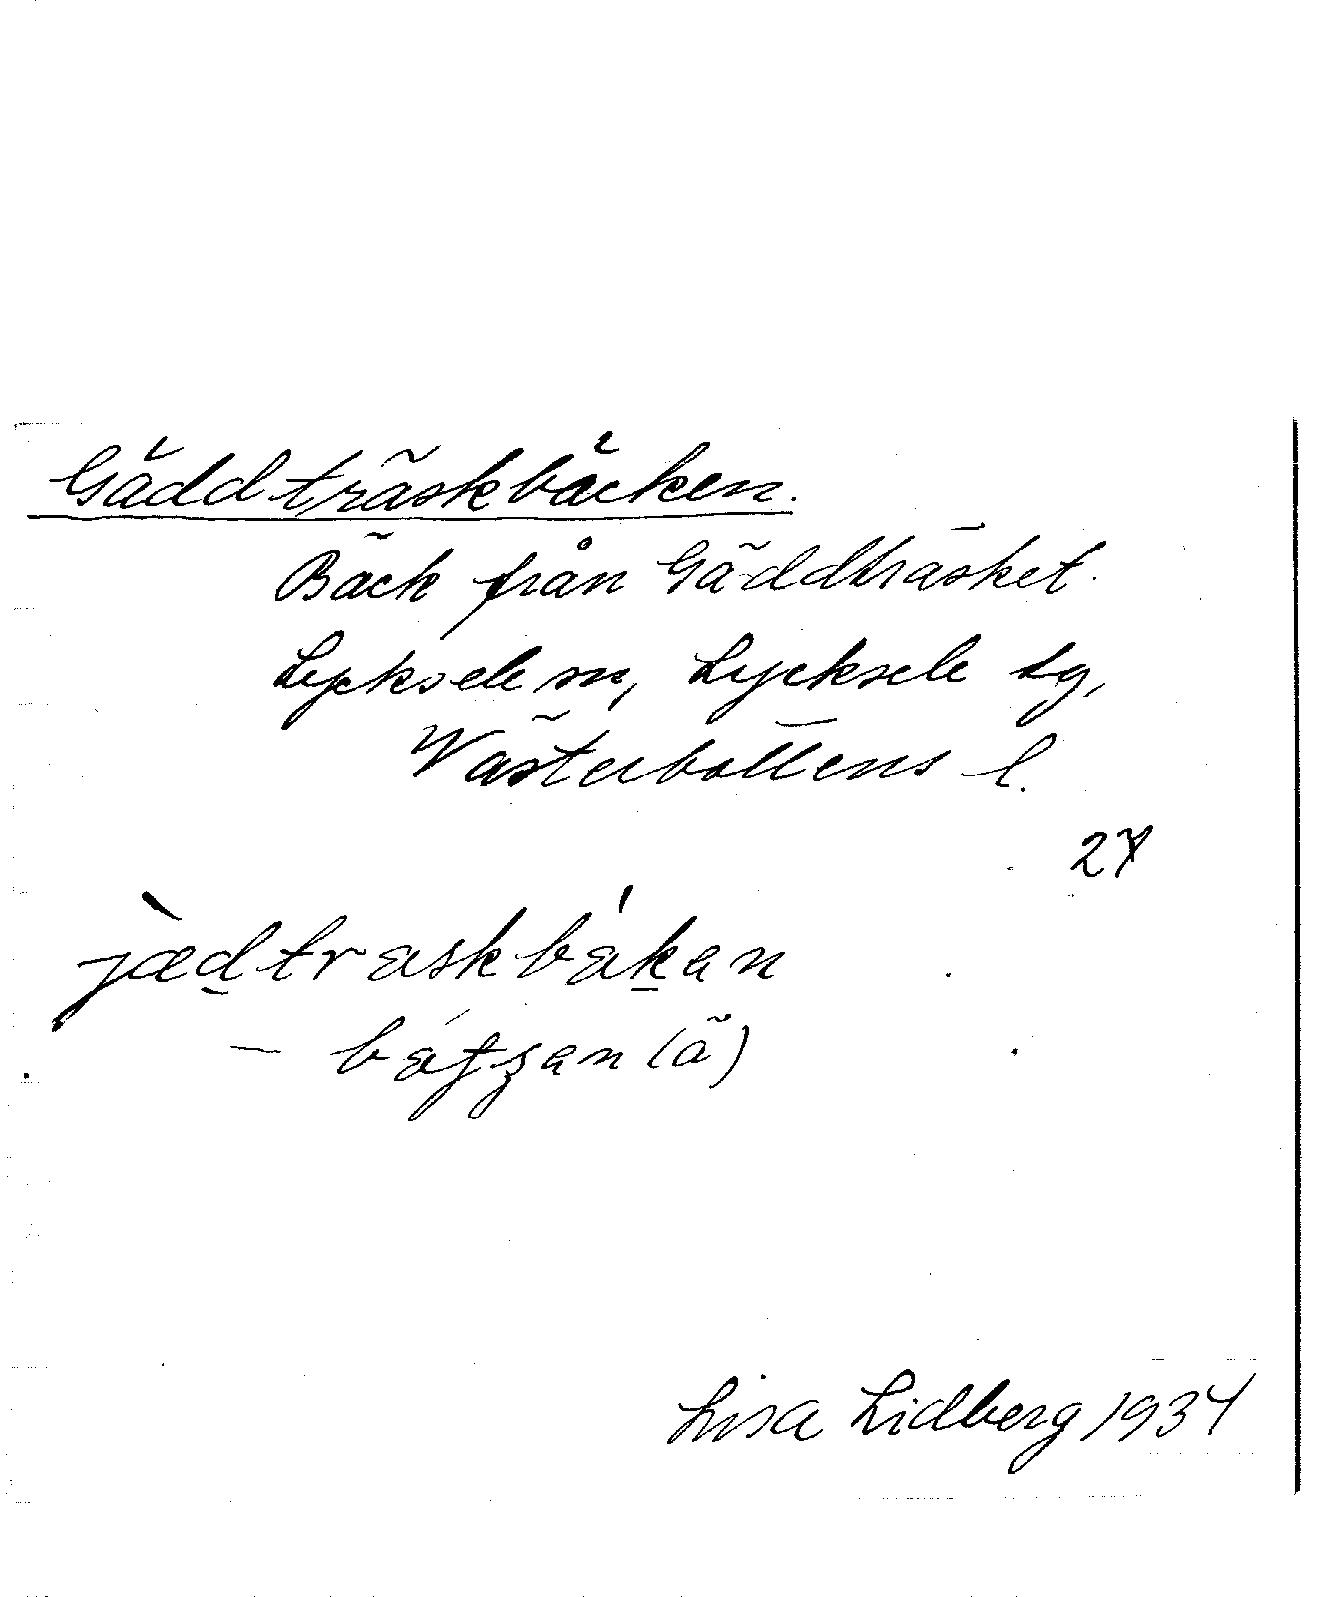 Gäddträskbäcken.
Bäck från Gäddträsket.
Lycksele sn, Lycksele tg,
Västerbottens l.
24
jæ̀dtraskbákan
— (ä)
Lisa Lidberg 1934